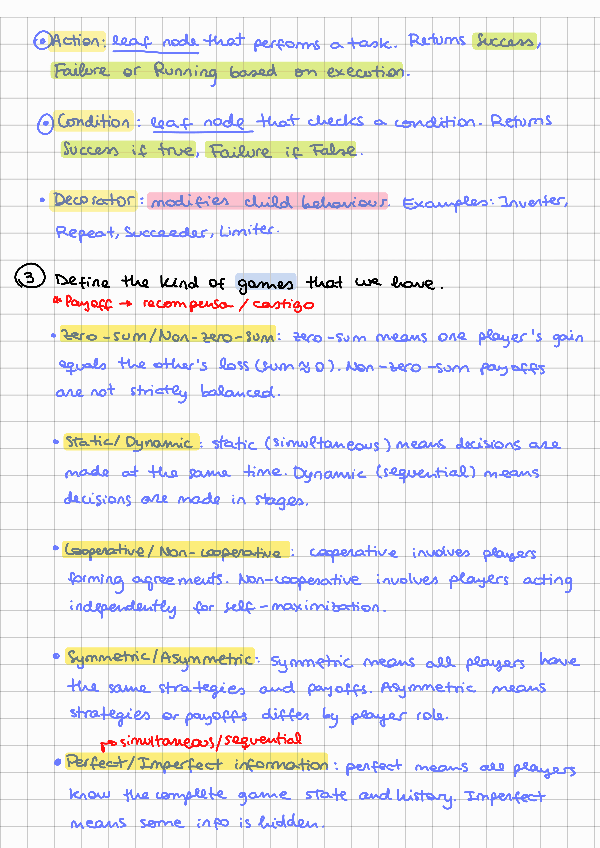 • Action: leaf node that performs a task. Returns Success,
Failure or Running based on execution.
• Condition: leaf node that checks a condition. Returns
Success if true, Failure if False.
• Decorator: modifies child behaviour. Examples: Inverter,
Repeat, Succeeder, Limiter.
3 Define the kind of games that we have.
* Payoff → recompensa / castigo
• Zero-sum/Non-zero-sum: zero-sum means one player's gain
equals the other's loss (sum ≈ 0). Non-zero-sum payoffs
are not strictly balanced.
• Static/Dynamic: static (simultaneous) means decisions are
made at the same time. Dynamic (sequential) means
decisions are made in stages.
• Cooperative/Non-cooperative: cooperative involves players
forming agreements. Non-cooperative involves players acting
independently for self-maximization.
• Symmetric/Asymmetric: symmetric means all players have
the same strategies and payoffs. Asymmetric means
strategies or payoffs differ by player role.
↱ simultaneous/sequential
• Perfect/Imperfect information: perfect means all players
know the complete game state and history. Imperfect
means some info is hidden.